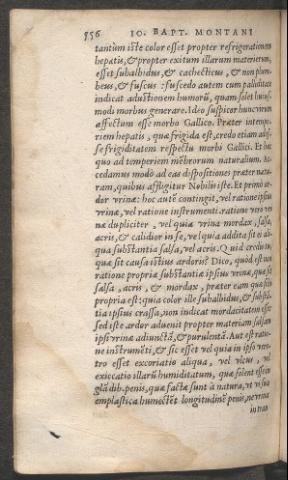 556 IO. BAPT. MONTANI
tantùm iste color esset propter refrigerationem
hepatis, & propter exitum illarum materierum,
esset subalbidus, & cachecticus, & non plum-
beus, & fuscus: fuscedo autem cum palliditate
indicat adustionem humorũ, quam solet huius-
modi morbus generare. Ideo suspicor hunc virum
affectum esse morbo Gallico. Præter intempe-
riem hepatis, quæ frigida est, credo etiam
se frigiditatem respectu morbi Gallici. Et hæc
quo ad temperiem mẽbrorum naturalium.
cedamus modo ad eas dispositiones præter natu-
ram, quibus affligitur Nobilis iste. Et primò ar-
dor vrinæ: hoc autẽ contingit, vel ratione ipsius
vrinæ, vel ratione instrumenti. ratione vero vri
næ dupliciter, vel quia vrina mordax, salsa,
acris, & calidior in se, vel quia addita sit ei ali-
qua substantia salsa, vel acris. Quid credo tu,
quæ sit causa istius ardoris? Dico, quòd est non
ratione propria substantiæ ipsius vrinæ, quæ sit
salsa, acris, & mordax, præter eam quæ sibi
propria est: quia color ille subalbidus, & substã-
tia ipsius crassa, non indicat mordacitatem
sed iste ardor aduenit propter materiam salsam
ipsi vrinæ adiunctã, & purulentã. Aut est ratio-
ne instrumẽti, & sic esset vel quia in ipso ven-
tro esset excoriatio aliqua, vel vlcus, vel
exiccatio illarũ humiditatum, quæ solent esse in
glãdib. penis, quæ factæ sunt à natura, vt visco
emplastica humectẽt longitudinẽ penis, ne vrina
in tran